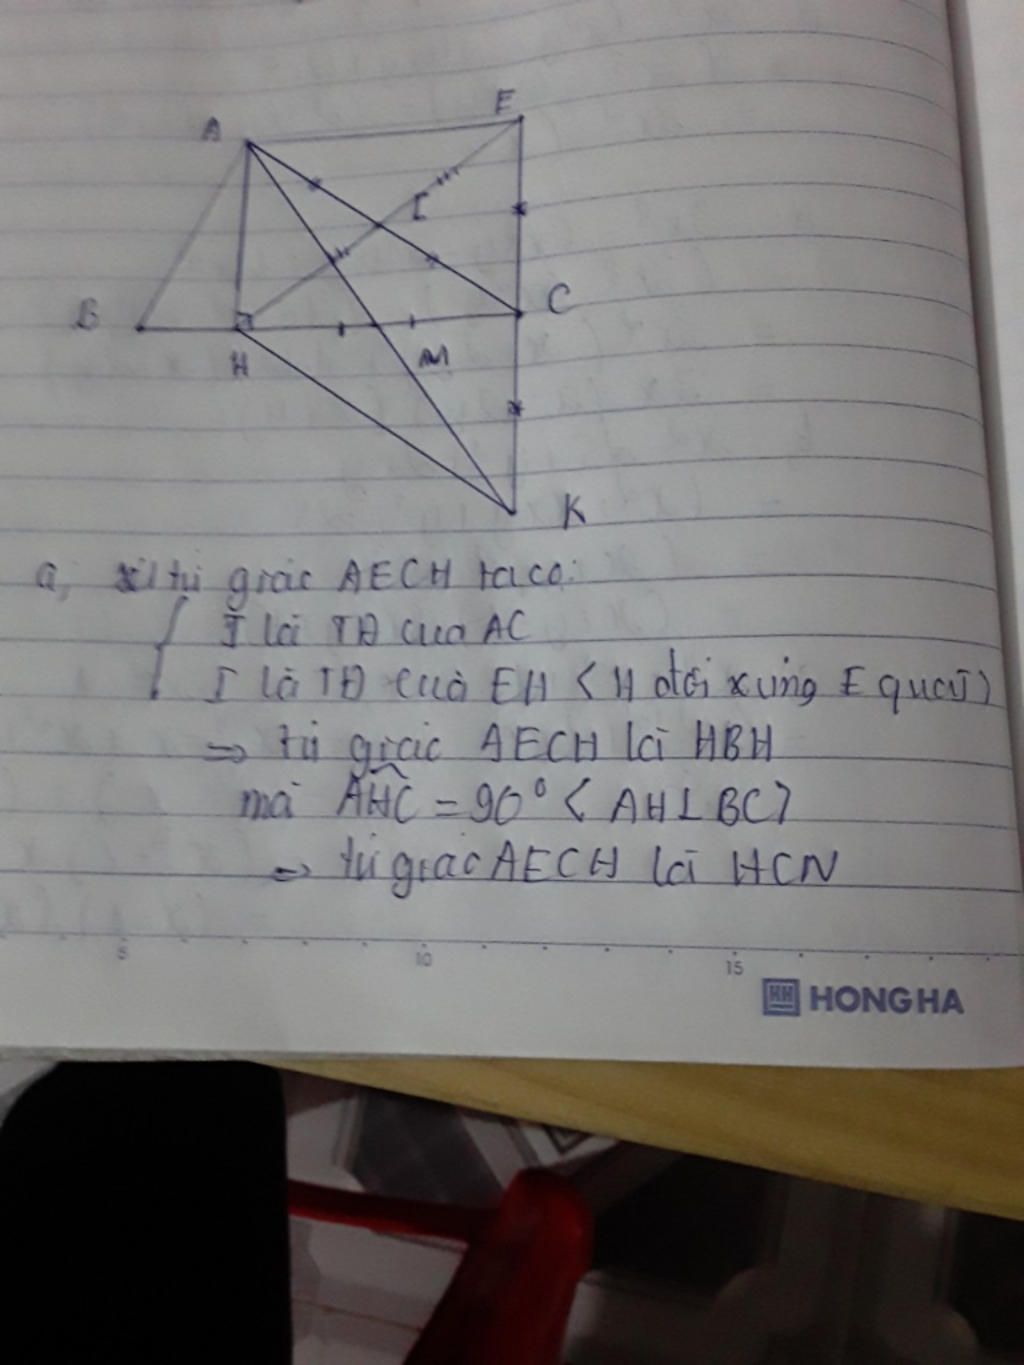 A
E
I
B
H
M
C
K
a, xét tứ giác AECH ta có:
I là TĐ của AC
I là TĐ của EH < H đối xứng E qua I >
=> tứ giác AECH là HBH
mà AHC = 90° < AH ⊥ BC >
=> tứ giác AECH là HCN
5 10 15
HH HONG HA